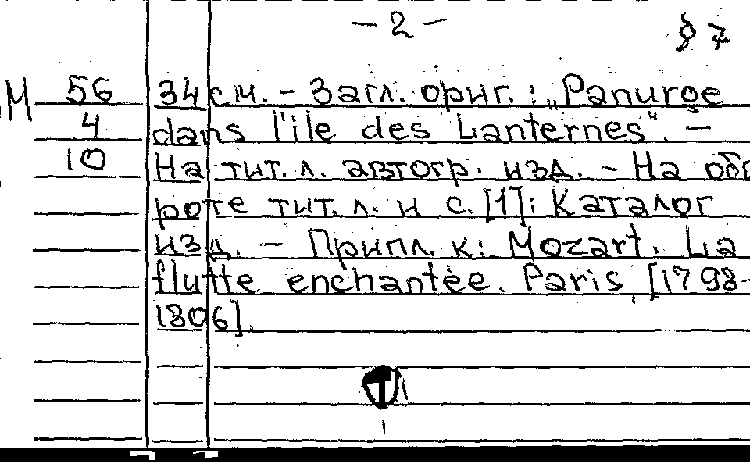 - 2 -
М 56 34 см. - Загл. ориг.: „Panurge
4 dans l'île des Lanternes". -
10 На тит. л. автогр. изд. - На обо
роте тит. л. и с. [1]: Каталог
изд. - Припл. к: Mozart. La
flutte enchantée. Paris, [1798-
1806].